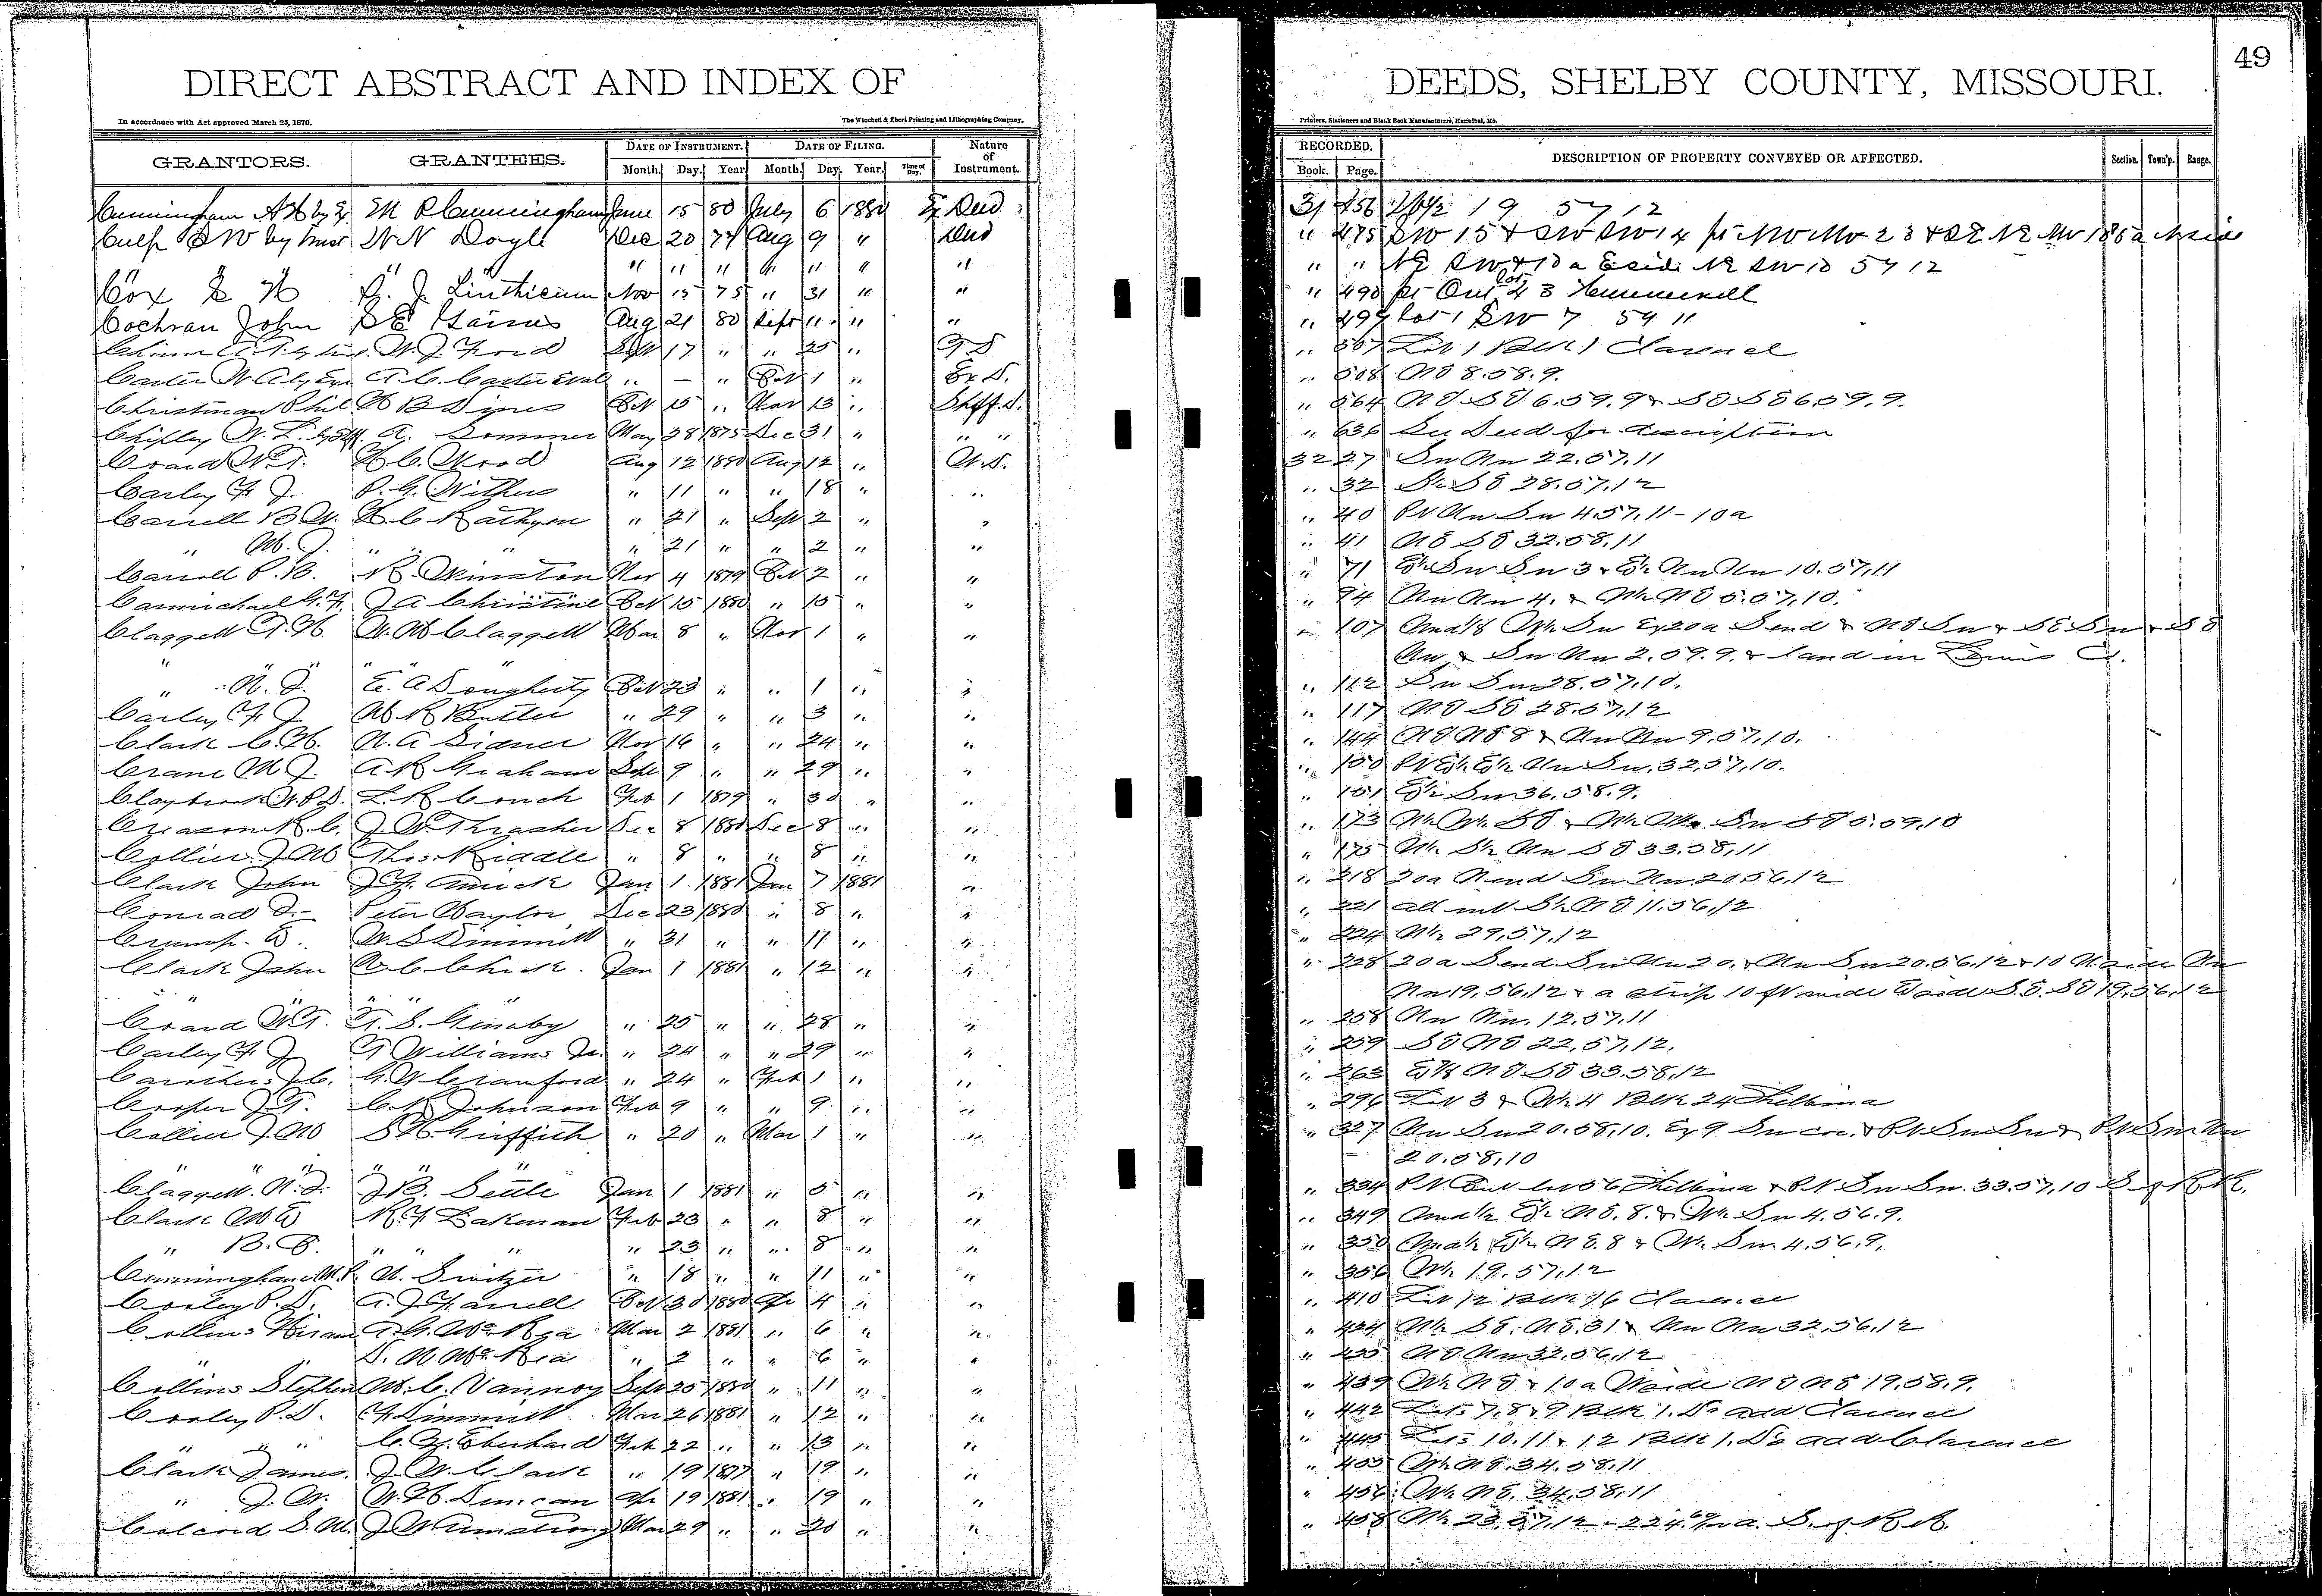 49
DIRECT ABSTRACT AND INDEX OF DEEDS, SHELBY COUNTY, MISSOURI.
In accordance with Act approved March 25, 1870. The Winchell & Ebert Printing and Lithographing Company, Printers, Stationers and Blank Book Manufacturers, Hannibal, Mo.
GRANTORS. GRANTEES. DATE OF INSTRUMENT. DATE OF FILING. Nature of Instrument. RECORDED. DESCRIPTION OF PROPERTY CONVEYED OR AFFECTED. Section. Town'p. Range.
Month. Day. Year Month. Day. Year. Time of Day. Book. Page.
Cunningham M P Cunningham June 15 80 July 6 1880 Ex Deed 31 456 19 57 12
Culp D W by Trust W N Doyle Dec 20 Aug 9 " Deed " 475 SW 15 &
" " " " " " " " " " NE SW & 10 a E side NE SW 15 57 12
Cox J. Linthicum Nov 15 75 " 31 " " " 490 pt Out lot 43 Hunnewell
Cochran John S E Gaines Aug 21 80 Sept 11 " " " 499 Lot 1 SW 7 59 11
W. J. Ford Sept 17 " " 25 " T D " 507 Lot 1 Blk 1 Clarence
Carter W A by Exr A. C. Carter " — " Oct 1 " Ex. D. " 508 NE 8.58.9.
Christman Phil W B Oct 15 " Nov 13 " Shff. D. " 564 NE SE 6.59.9 & SE SE 6 59.9.
Chipley W. L. by Shff. A. Sommer May 28 1875 Dec 31 " " " " 636 See Deed for description
W. T. H C. Wood Aug 12 1880 Aug 12 " W.D. 32 27 Sw Nw 22.57.11
Carley F J. P. G. Withers " 11 " " 18 " " " 32 SE 28.57.12
Carrell B W. H. C. " 21 " Sept 2 " " " 40 Pt Nw Sw 4 57.11 - 10a
" M. J. " " " " 21 " " 2 " " " 41 NE SE 32.58.11
Carroll P. B. Winston Nov 4 1879 Oct 2 " " " 71 E½ Sw Sw 3 & E½ Nw Nw 10.57.11
Carmichael J A Christine Oct 15 1880 " 15 " " " 94 Nw Nw 4. & NE 5.57.10.
Claggett T. H. W. M Claggett Mar 8 " Nov 1 " " " 107 Und 1/8 W½ Sw Ex 20a S end & NE Sw & SE Sw & SE
" " " " " " Nw & Sw Nw 2.59.9. & land in Lewis Co.
" N. J. E. A Dougherty Oct 23 " " 1 " " " 112 Sw Sw 28.57.10.
Carley F J M R Butler " 29 " " 3 " " " 117 NE SE 28.57.12
Clark C. H. N. A Sidner Nov 16 " " 24 " " " 144 NE NE 8 & Nw Nw 9.57.10.
Crane M J. A R Graham Sept 9 " " 29 " " " 150 Pt E½ E½ Nw Sw. 32.57.10.
Claybrook W P D. L. R Couch Feb 1 1879 " 30 " " " 151 E½ Sw 36.58.9.
Creason R. C. J W Thrasher Dec 8 1880 Dec 8 " " " 173 W½ SE & Sw SE 5.59.10
Collier J M Thos. Riddle " 8 " " 8 " " " 175 Nw SE 33.58.11
Clark John J F. Amick Jan 1 1881 Jan 7 1881 " " 218 20a N end Sw Nw 20 56.12
Conrad Peter Naylor Dec 23 1880 " 8 " " " 221 all int S½ NE 11.56.12
Crump. E W. S Dimmitt " 31 " " 11 " " " 224 29.57.12
Clark John C Chick. Jan 1 1881 " 12 " " " 228 20a S end Sw Nw 20. & Nw Sw 20.56.12 & 10
" " " " " Nw 19.56.12 & a strip 10 ft wide E side S.E. SE 19.56.12
W T. T. S. Gunby " 25 " " 28 " " " 258 Nw Nw. 12.57.11
Carley F J T Williams Jr. " 24 " " 29 " " " 259 SE NE 22.57.12.
Carothers J C. G. W Crawford " 24 " Feb 1 " " " 263 E½ NE SE 33.58.12
Cooper J T. C. R Johnson Feb 9 " " 9 " " " 296 Lot 3 & W½ 4 Blk 24 Shelbina
Collier J M S H. Griffith " 20 " Mar 1 " " " 327 Nw Sw 20.58.10. Ex 9 Sw cor. & Pt Sw Sw & Pt Sw Nw
" " " " " " 20.58.10
Claggett. N. J. J B. Settle Jan 1 1881 " 5 " " " 334 Pt Out lot 56 Shelbina & Pt Sw Sw. 33.57.10 S of R.R.
Clark M E R. F Lakenan Feb 23 " " 8 " " " 349 Und ½ E½ NE. 8. & W½ Sw 4.56.9.
" B. C. " " " " 23 " " 8 " " " 350 Und ½ E½ NE. 8 & W½ Sw. 4.56.9.
Cunningham M. P. N. Switzer " 18 " " 11 " " " 356 19.57.12
Cooley P. D. A. J. Farrell Oct 30 1880 Apr 4 " " " 410 Lot 12 Blk 16 Clarence
Collins Hiram A. G. McRea Mar 2 1881 " 6 " " " 424 SE. NE. 31 & Nw Nw 32.56.12
" " D. N McRea " 2 " " 6 " " " 425 NE Nw 32.56.12
Collins Stephen M. C. Vannoy Sept 25 1880 " 11 " " " 439 W½ NE & 10 a W side NE NE 19.58.9.
Cooley P. D. F Dimmitt Mar 26 1881 " 12 " " " 442 Lots 7.8 & 9 Blk 1. Do add Clarence
" " " C. Eberhard Feb 22 " " 13 " " " 445 Lots 10.11 & 12 Blk 1. Do add Clarence
Clark James. J. W. Clark " 19 1877 " 19 " " " 455 W½ NE. 34.58.11
" J. W. W. H. Duncan Apr 19 1881 " 19 " " " 456 W½ NE. 34.58.11
Colcord S. M. J W Armstrong Mar 29 " " 20 " " " 458 23.57.12 - S. of R R.